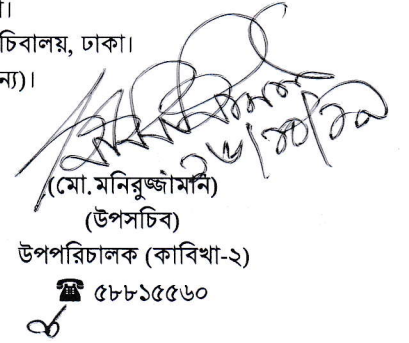 চিবালয়, ঢাকা।
ন্য)।
২৬/১০/১৯
(মো. মনিরুজ্জামান)
(উপসচিব)
উপপরিচালক (কাবিখা-২)
☎ ৫৮৮১৫৫৬০